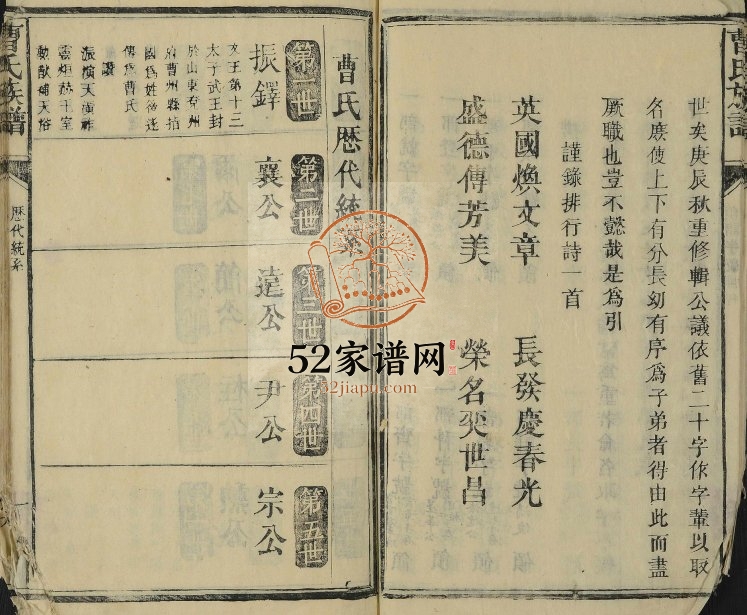 曹氏族譜
世矣庚辰秋重修輯公議依舊二十字作字輩以取
名庶使上下有分長幼有序爲子弟者得由此而盡
厥職也豈不懿哉是爲引
謹錄排行詩一首
英國煥文章 長發慶春光
盛德傳芳美 榮名奕世昌
曹氏歷代統系
第一世
振鐸
文王第十三
太子武王封
於山東兗州
府曹州縣拍
國爲姓後遂
傳爲曹氏
讚
振演天潢祚
雲炬赫王室
勳猷補天俗
第二世
襄公
第三世
達公
第四世
尹公
第五世
宗公
曹氏族譜
歷代統系
52家谱网
52jiapu.com